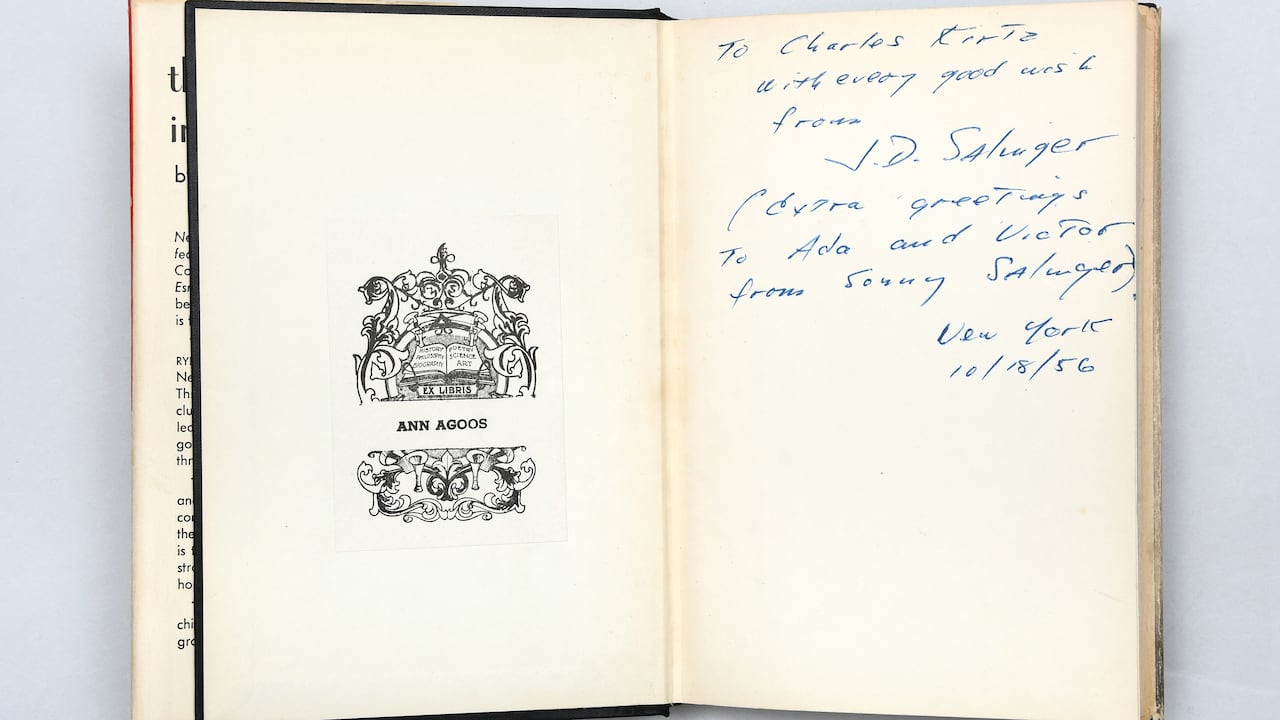 th
in
b
Ne
fea
Ca
Esn
be
is t
RYE
Ne
Thi
clu
lea
go
thr
an
co
the
is t
stro
ho
chi
gro
HISTORY
PHILOSOPHY
BIOGRAPHY
POETRY
SCIENCE
ART
EX LIBRIS
ANN AGOOS
To Charles Kirtz
with every good wish
from
J.D. Salinger
(Extra greetings
to Ada and Victor
from Sonny Salinger)
New York
10/18/56